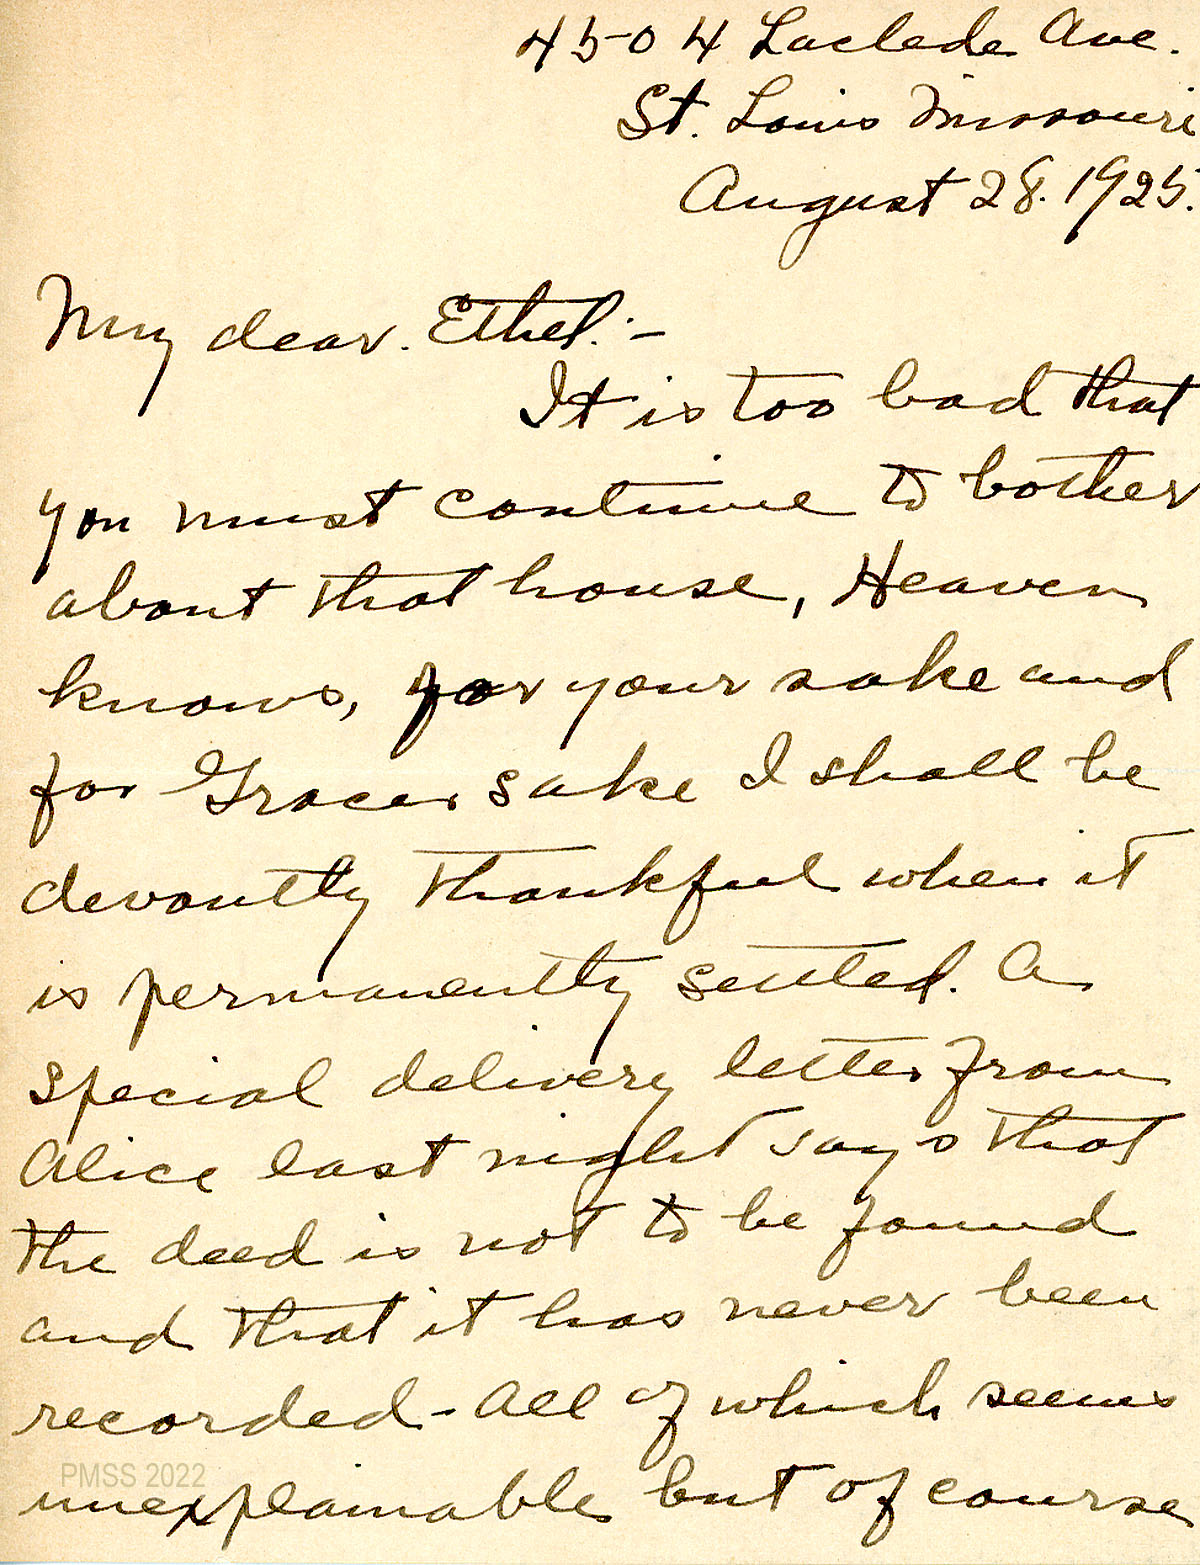 4504 Laclede Ave.
St. Louis Missouri
August 28. 1925.
My dear. Ethel:-
It is too bad that
you must continue to bother
about that house, Heaven
knows, for your sake and
for Graces sake I shall be
devoutly thankful when it
is permanently settled. A
special delivery letter from
Alice last night says that
the deed is not to be found
and that it has never been
recorded - All of which seems
PMSS 2022
unexplainable but of course